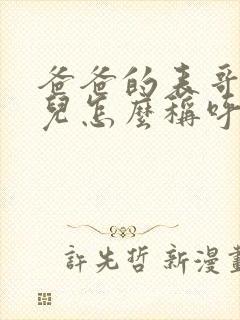 爸爸的表哥
兒怎麼稱呼
許先哲 新漫畫